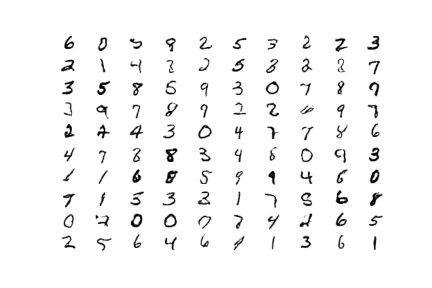 6 0 5 9 2 5 3 2 2 3
2 1 4 2 5 8 2 8 7
3 5 8 5 9 3 0 7 8 9
3 9 7 8 9 2 2 9 7
2 4 3 0 4 7 7 8 6
4 7 8 8 3 4 6 0 9 3
1 6 8 5 9 9 4 6 0
7 1 5 3 3 1 7 8 6 8
0 0 0 7 7 4 6 5
2 5 6 4 6 1 3 6 1